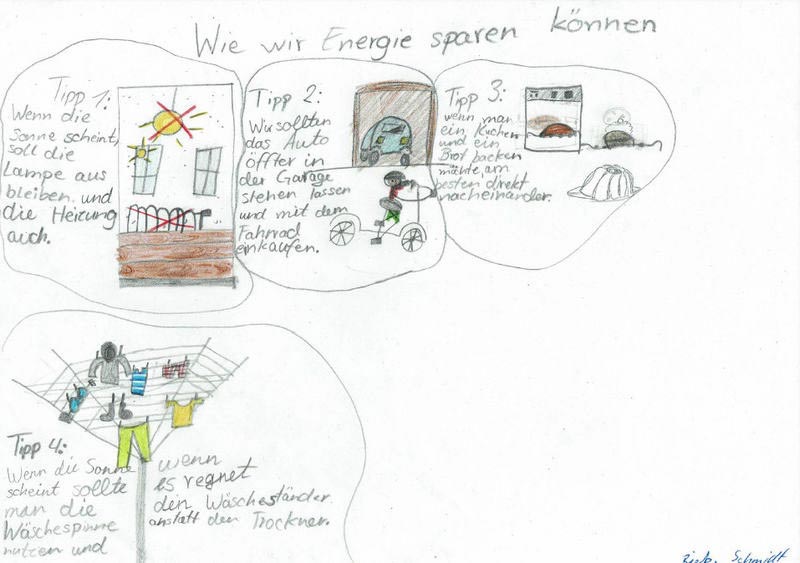 Wie wir Energie sparen können
Tipp 1:
Wenn die
Sonne scheint,
soll die
Lampe aus
bleiben. und
die Heizung
auch.
Tipp 2:
Wir sollten
das Auto
öffter in
der Garage
stehen lassen
und mit dem
Fahrrad
einkaufen.
Tipp 3:
wenn man
ein Kuchen
und ein
Brot backen
möchte am
besten direkt
nacheinander.
Tipp 4:
Wenn die Sonne
scheint sollte
man die
Wäschespinne
nutzen und
wenn
es regnet
den Wäscheständer
anstatt den Trockner.
Schmidt